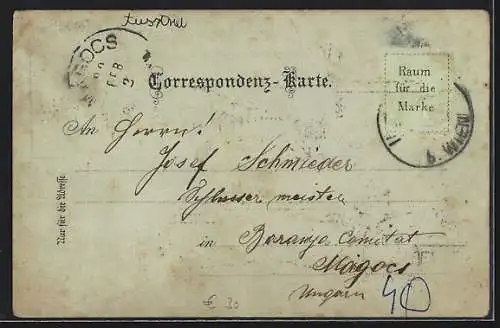 MÁGOCS
FEB
2
Correspondenz-Karte.
Raum
für die
Marke
WIEN
An Herrn!
Josef Schmieder
Schlosser meister
in Baranya Comitat
Mágocs
Ungarn
Nur für die Adresse
€ 30
40